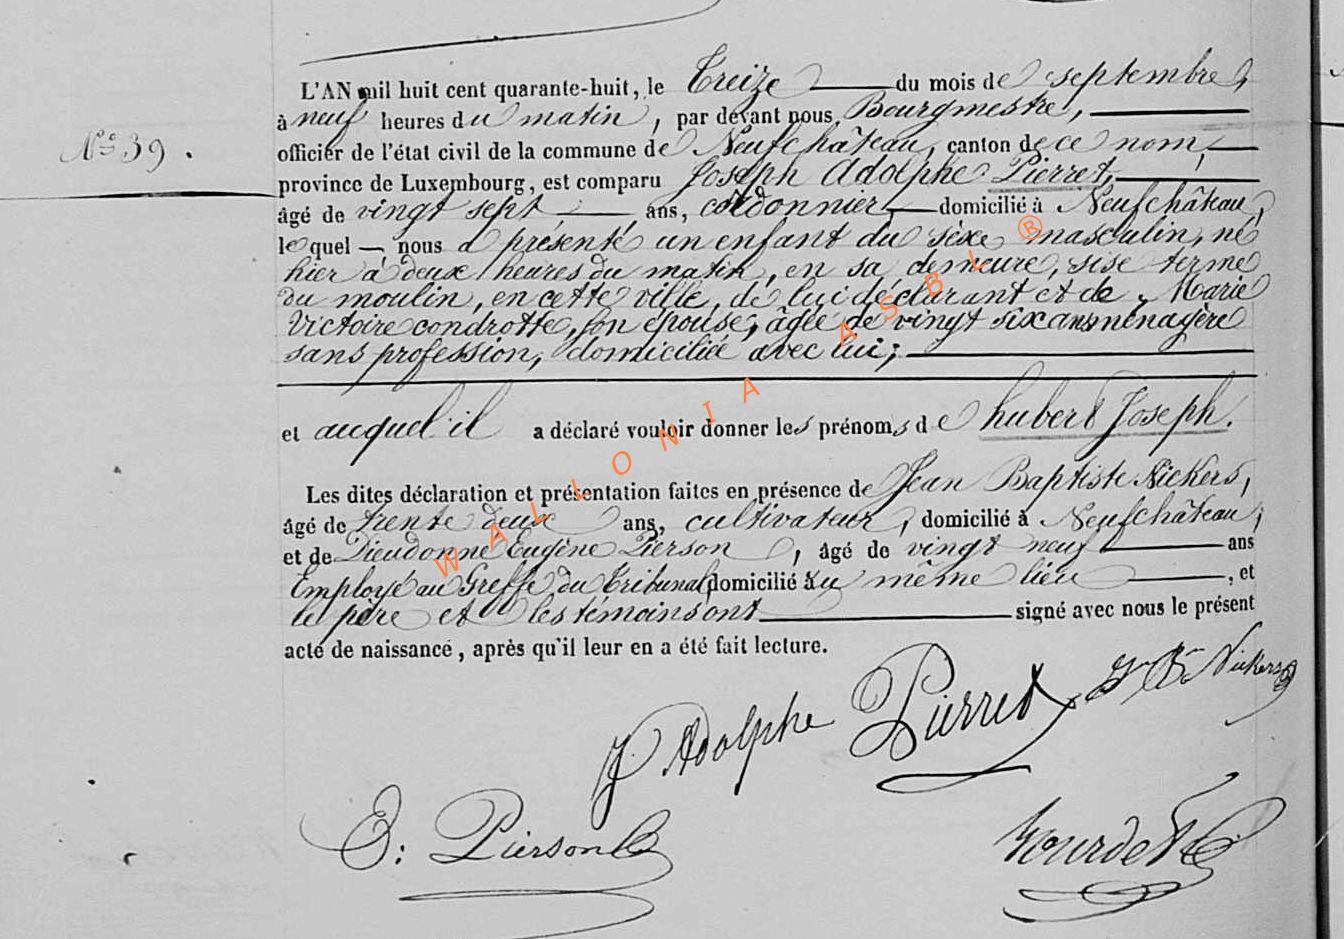 L'AN mil huit cent quarante-huit, le Treize du mois de septembre,
à neuf heures du matin, par devant nous, Bourgmestre,
N° 39.
officier de l'état civil de la commune de Neufchâteau, canton de ce nom,
province de Luxembourg, est comparu Joseph Adolphe Pierret,
âgé de vingt sept ans, cordonnier domicilié à Neufchâteau,
lequel nous a présenté un enfant du sexe masculin, né
hier à deux heures du matin, en sa demeure, sise terme
du moulin, en cette ville, de lui déclarant et de Marie
Victoire condrotte, son épouse, âgée de vingt six ans ménagère
sans profession, domiciliée avec lui;
et auquel il a déclaré vouloir donner les prénoms de hubert Joseph.
Les dites déclaration et présentation faites en présence de Jean Baptiste Nickers,
âgé de trente deux ans, cultivateur, domicilié à Neufchâteau,
et de Dieudonné Eugène Pierson, âgé de vingt neuf ans
Employé au Greffe du Tribunal domicilié au même lieu, et
le père et les témoins ont signé avec nous le présent
acte de naissance, après qu'il leur en a été fait lecture.
J. Adolphe Pierret Jn Bte Nickers
E: Pierson
WALLONIA ASBL ®